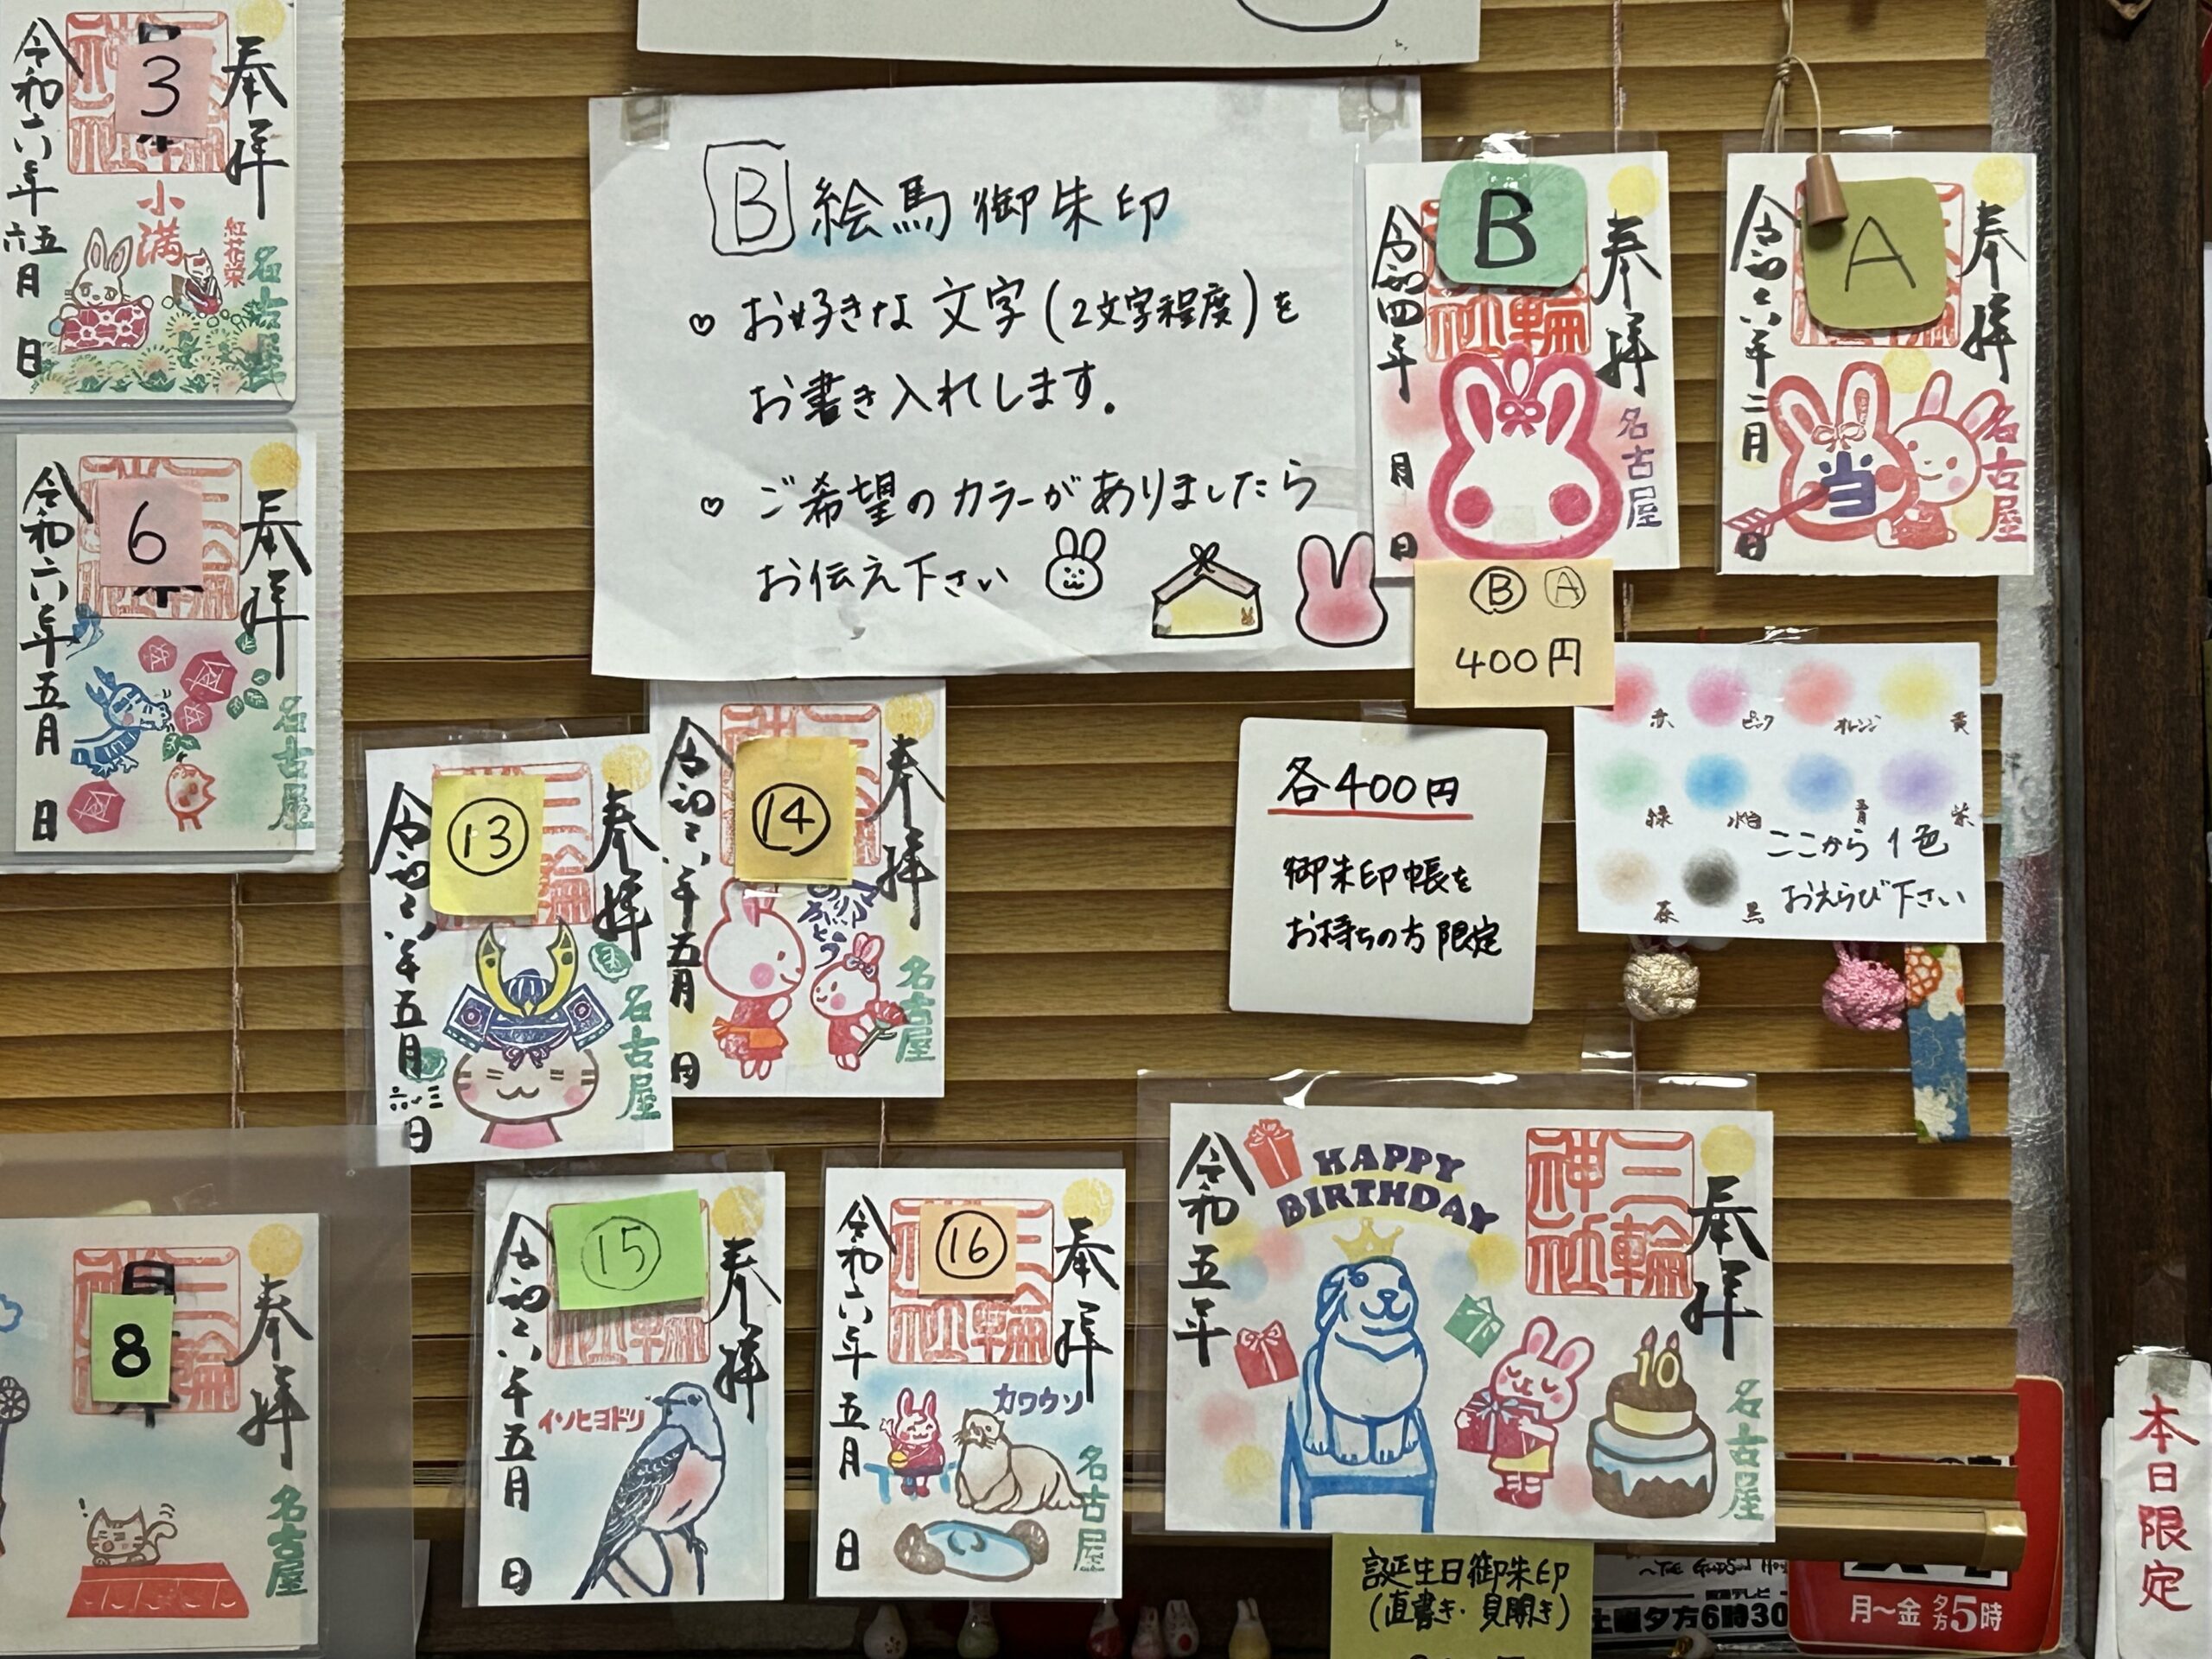 奉拝
3
令和六年
五月
六日
小満
紅花栄
名古屋
奉拝
6
令和六年五月
日
名古屋
B 絵馬御朱印
♡ お好きな文字(2文字程度)を
お書き入れします。
♡ ご希望のカラーがありましたら
お伝え下さい
奉拝
B
令和四年
月
日
名古屋
奉拝
A
令和六年二月
日
当
名古屋
B A
400円
赤 ピンク オレンジ 黄
緑 水色 青 紫
茶 黒
ここから1色
おえらび下さい
各400円
御朱印帳を
お持ちの方限定
奉拝
13
三輪
令和六年五月
日
名古屋
奉拝
14
令和六年五月
日
名古屋
奉拝
8
三輪
名古屋
奉拝
15
三輪神社
令和六年五月
日
イソヒヨドリ
奉拝
16
三輪神社
令和六年五月
日
カワウソ
名古屋
奉拝
三輪神社
令和五年
HAPPY
BIRTHDAY
10
名古屋
誕生日御朱印
(直書き・見開き)
土曜夕方6時30
月〜金 夕方5時
本日限定